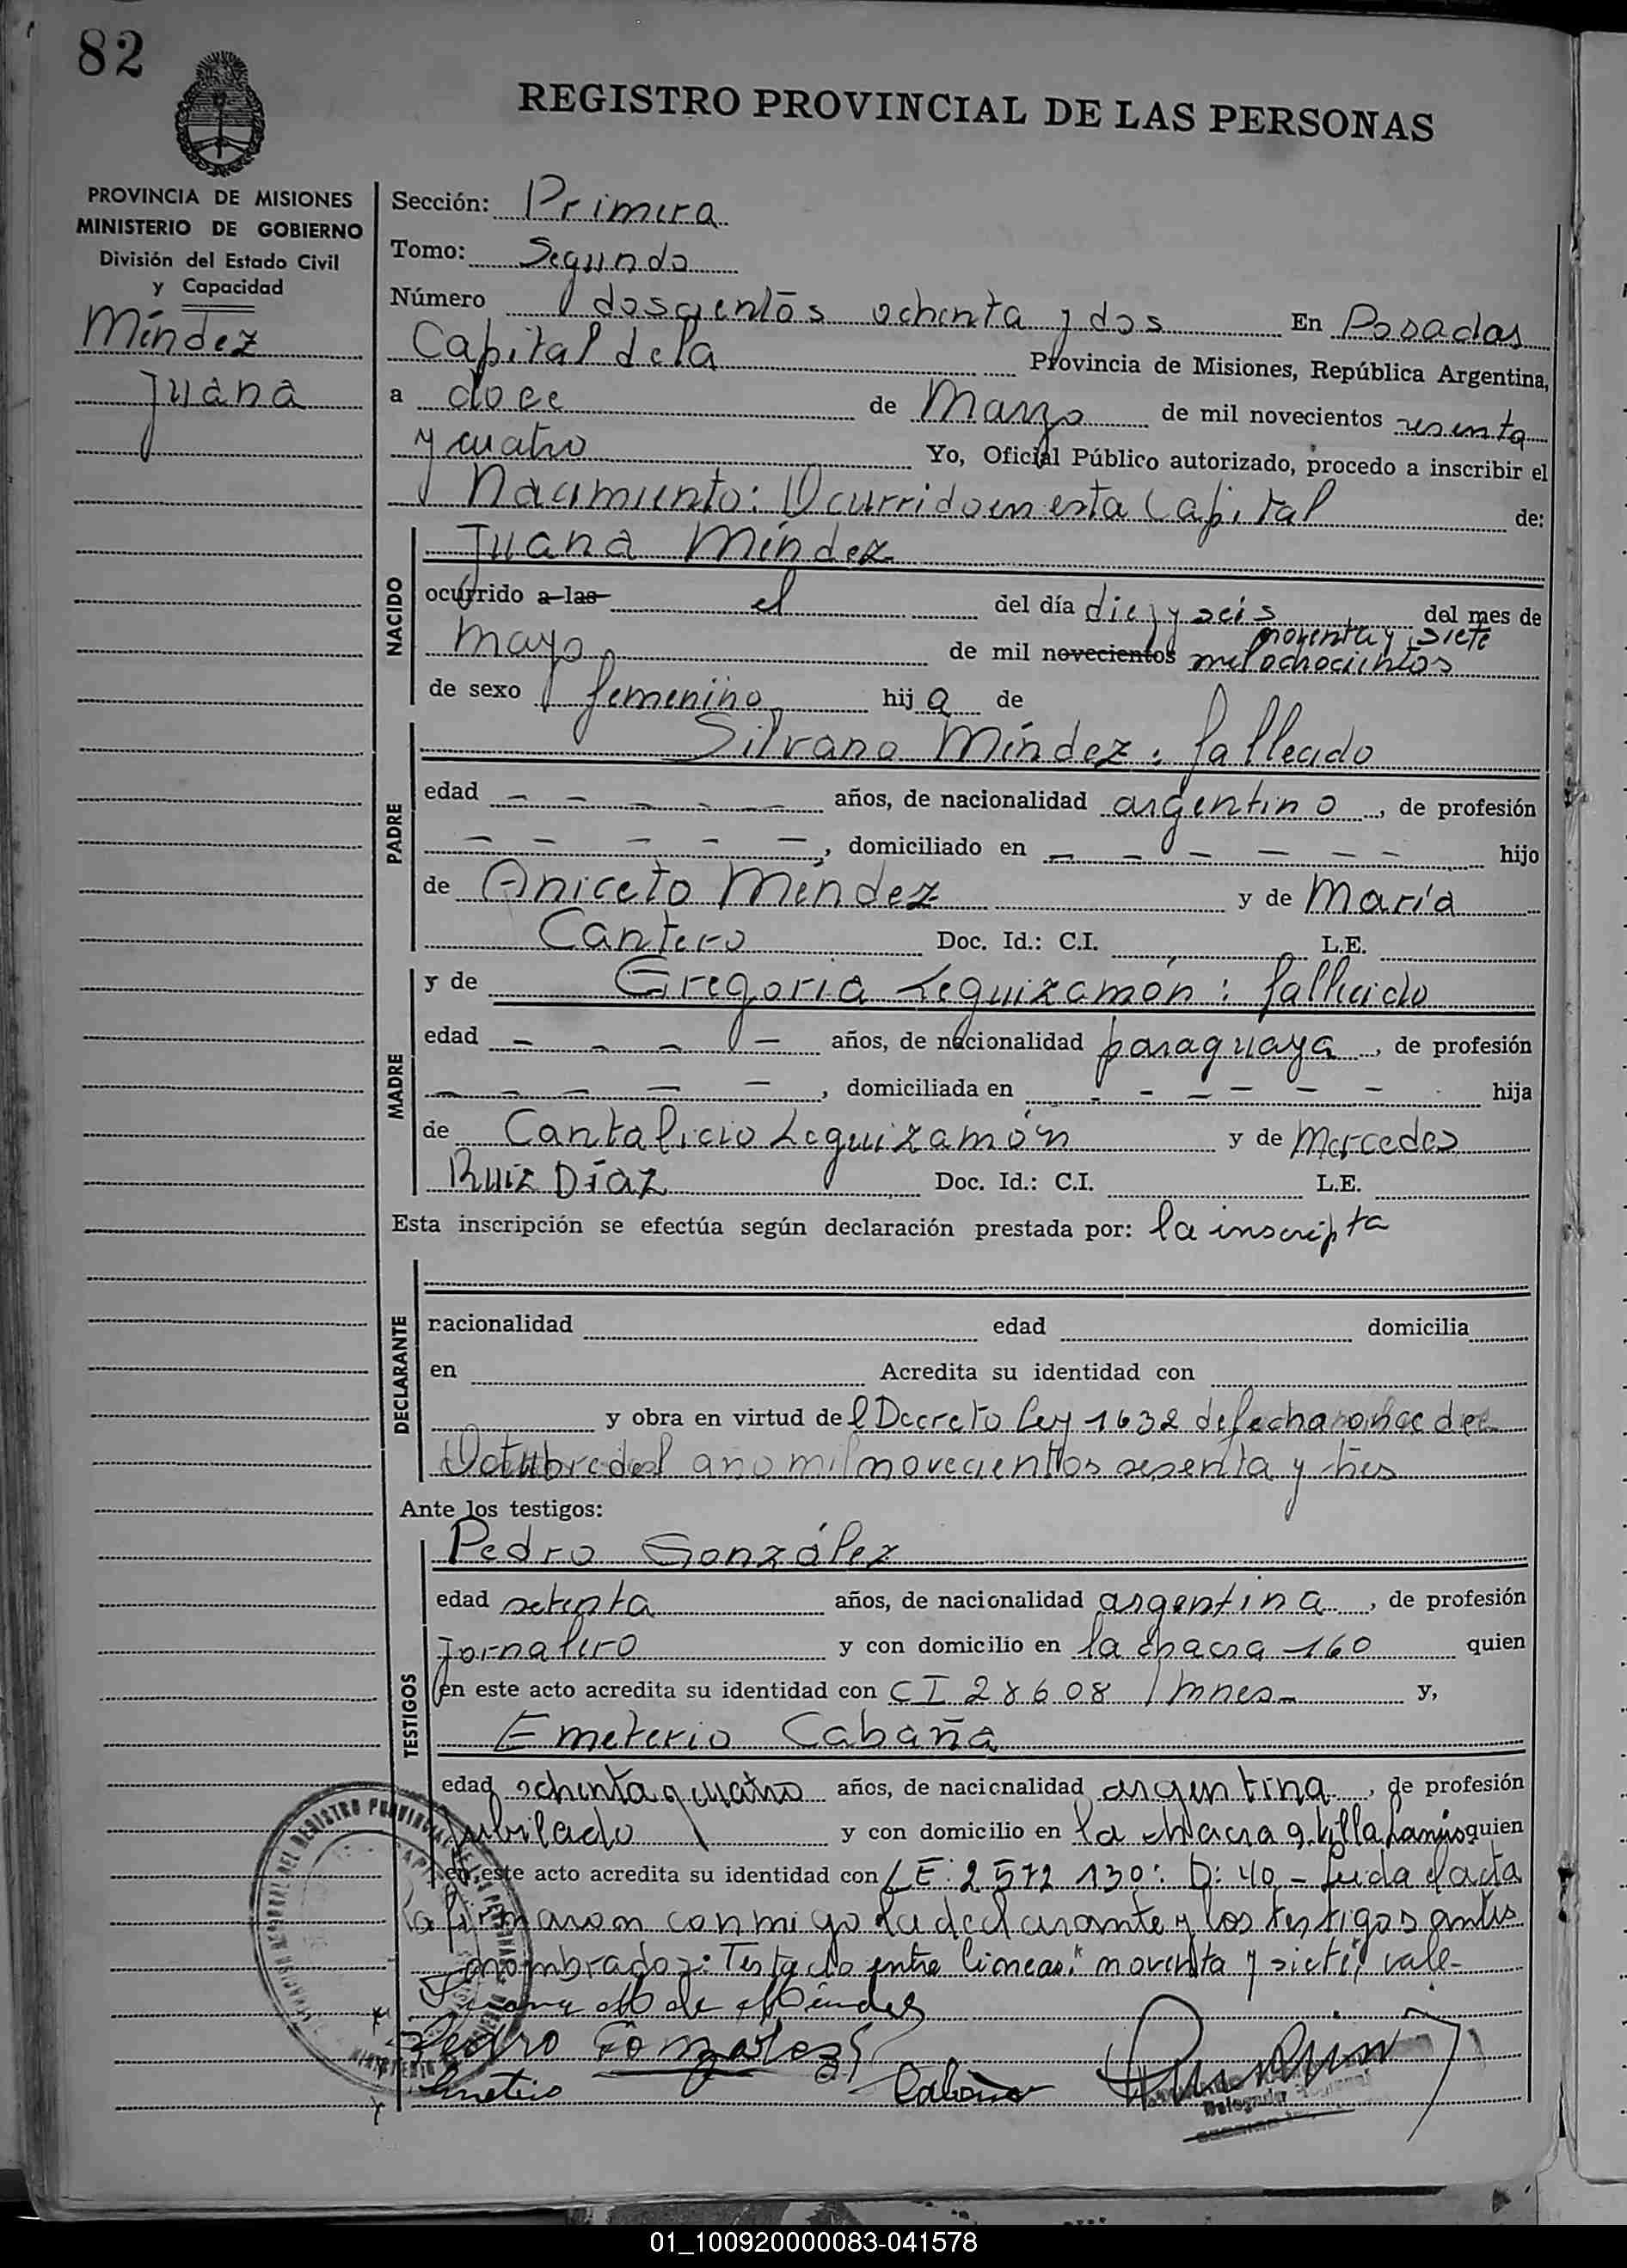 82
REGISTRO PROVINCIAL DE LAS PERSONAS
PROVINCIA DE MISIONES
MINISTERIO DE GOBIERNO
División del Estado Civil
y Capacidad
Méndez
Juana
Sección: Primera
Tomo: Segundo
Número doscientos ochenta y dos En Posadas
Capital de la Provincia de Misiones, República Argentina,
a doce de Marzo de mil novecientos sesenta
y cuatro Yo, Oficial Público autorizado, procedo a inscribir el
Nacimiento: Ocurrido en esta Capital de:
NACIDO
Juana Méndez
ocurrido a las el del día diez y seis del mes de
noventa y siete
mayo de mil novecientos mil ochocientos
de sexo femenino hija de
PADRE
Silvano Méndez: fallecido
edad - - - - - años, de nacionalidad argentino, de profesión
- - - - -, domiciliado en - - - - - - hijo
de Aniceto Méndez y de María
Cantero Doc. Id.: C.I. L.E.
MADRE
y de Gregoria Leguizamón: fallecido
edad - - - - años, de nacionalidad paraguaya, de profesión
- - - - -, domiciliada en - - - - - hija
de Cantalicio Leguizamón y de Mercedes
Ruiz Díaz Doc. Id.: C.I. L.E.
Esta inscripción se efectúa según declaración prestada por: la inscripta
DECLARANTE
nacionalidad edad domicilia
en Acredita su identidad con
y obra en virtud del Decreto Ley 1632 de fecha once de
Octubre del año mil novecientos sesenta y tres
Ante los testigos:
TESTIGOS
Pedro González
edad setenta años, de nacionalidad argentina, de profesión
Jornalero y con domicilio en la chacra 160 quien
en este acto acredita su identidad con CI 28608 /Mnes- y,
Emeterio Cabaña
edad ochenta y cuatro años, de nacionalidad argentina, de profesión
jubilado y con domicilio en la chacra 9. Villa Lanús quien
en este acto acredita su identidad con LE: 2 572 130: D: 40 - Leida el acta
la firmaron conmigo la declarante y los testigos antes
nombrados: Testado entre lineas: "noventa y siete", vale-
Juana M de Méndez
Pedro Gonzalez
Emeterio Cabaña
Delegado
01_100920000083-041578